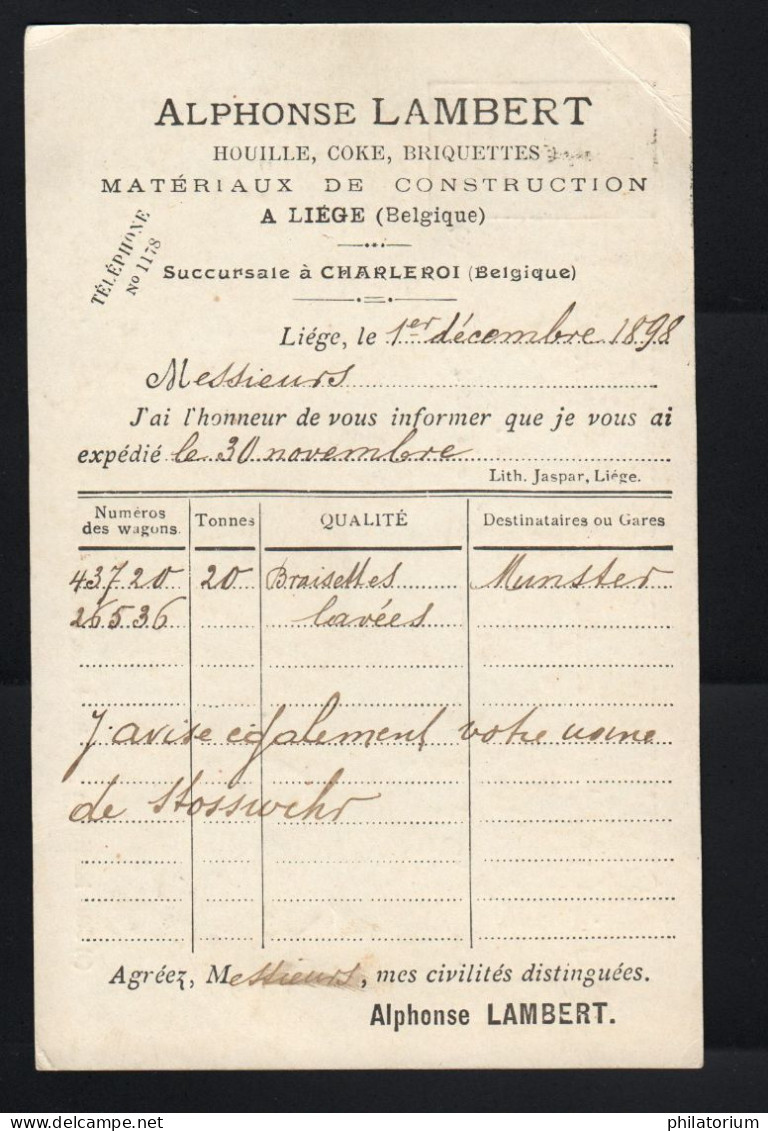 ALPHONSE LAMBERT
HOUILLE, COKE, BRIQUETTES
MATÉRIAUX DE CONSTRUCTION
A LIÉGE (Belgique)
TÉLÉPHONE
No 1178
Succursale à CHARLEROI (Belgique)
Liége, le 1er décembre 1898
Messieurs
J'ai l'honneur de vous informer que je vous ai
expédié le 30 novembre
Lith. Jaspar, Liége.
Numéros des wagons. Tonnes QUALITÉ Destinataires ou Gares
43720 20 Braisettes Munster
26536 lavées
J'avise également votre usine
de Stosswihr
Agréez, Messieurs, mes civilités distinguées.
Alphonse LAMBERT.
philatorium.com